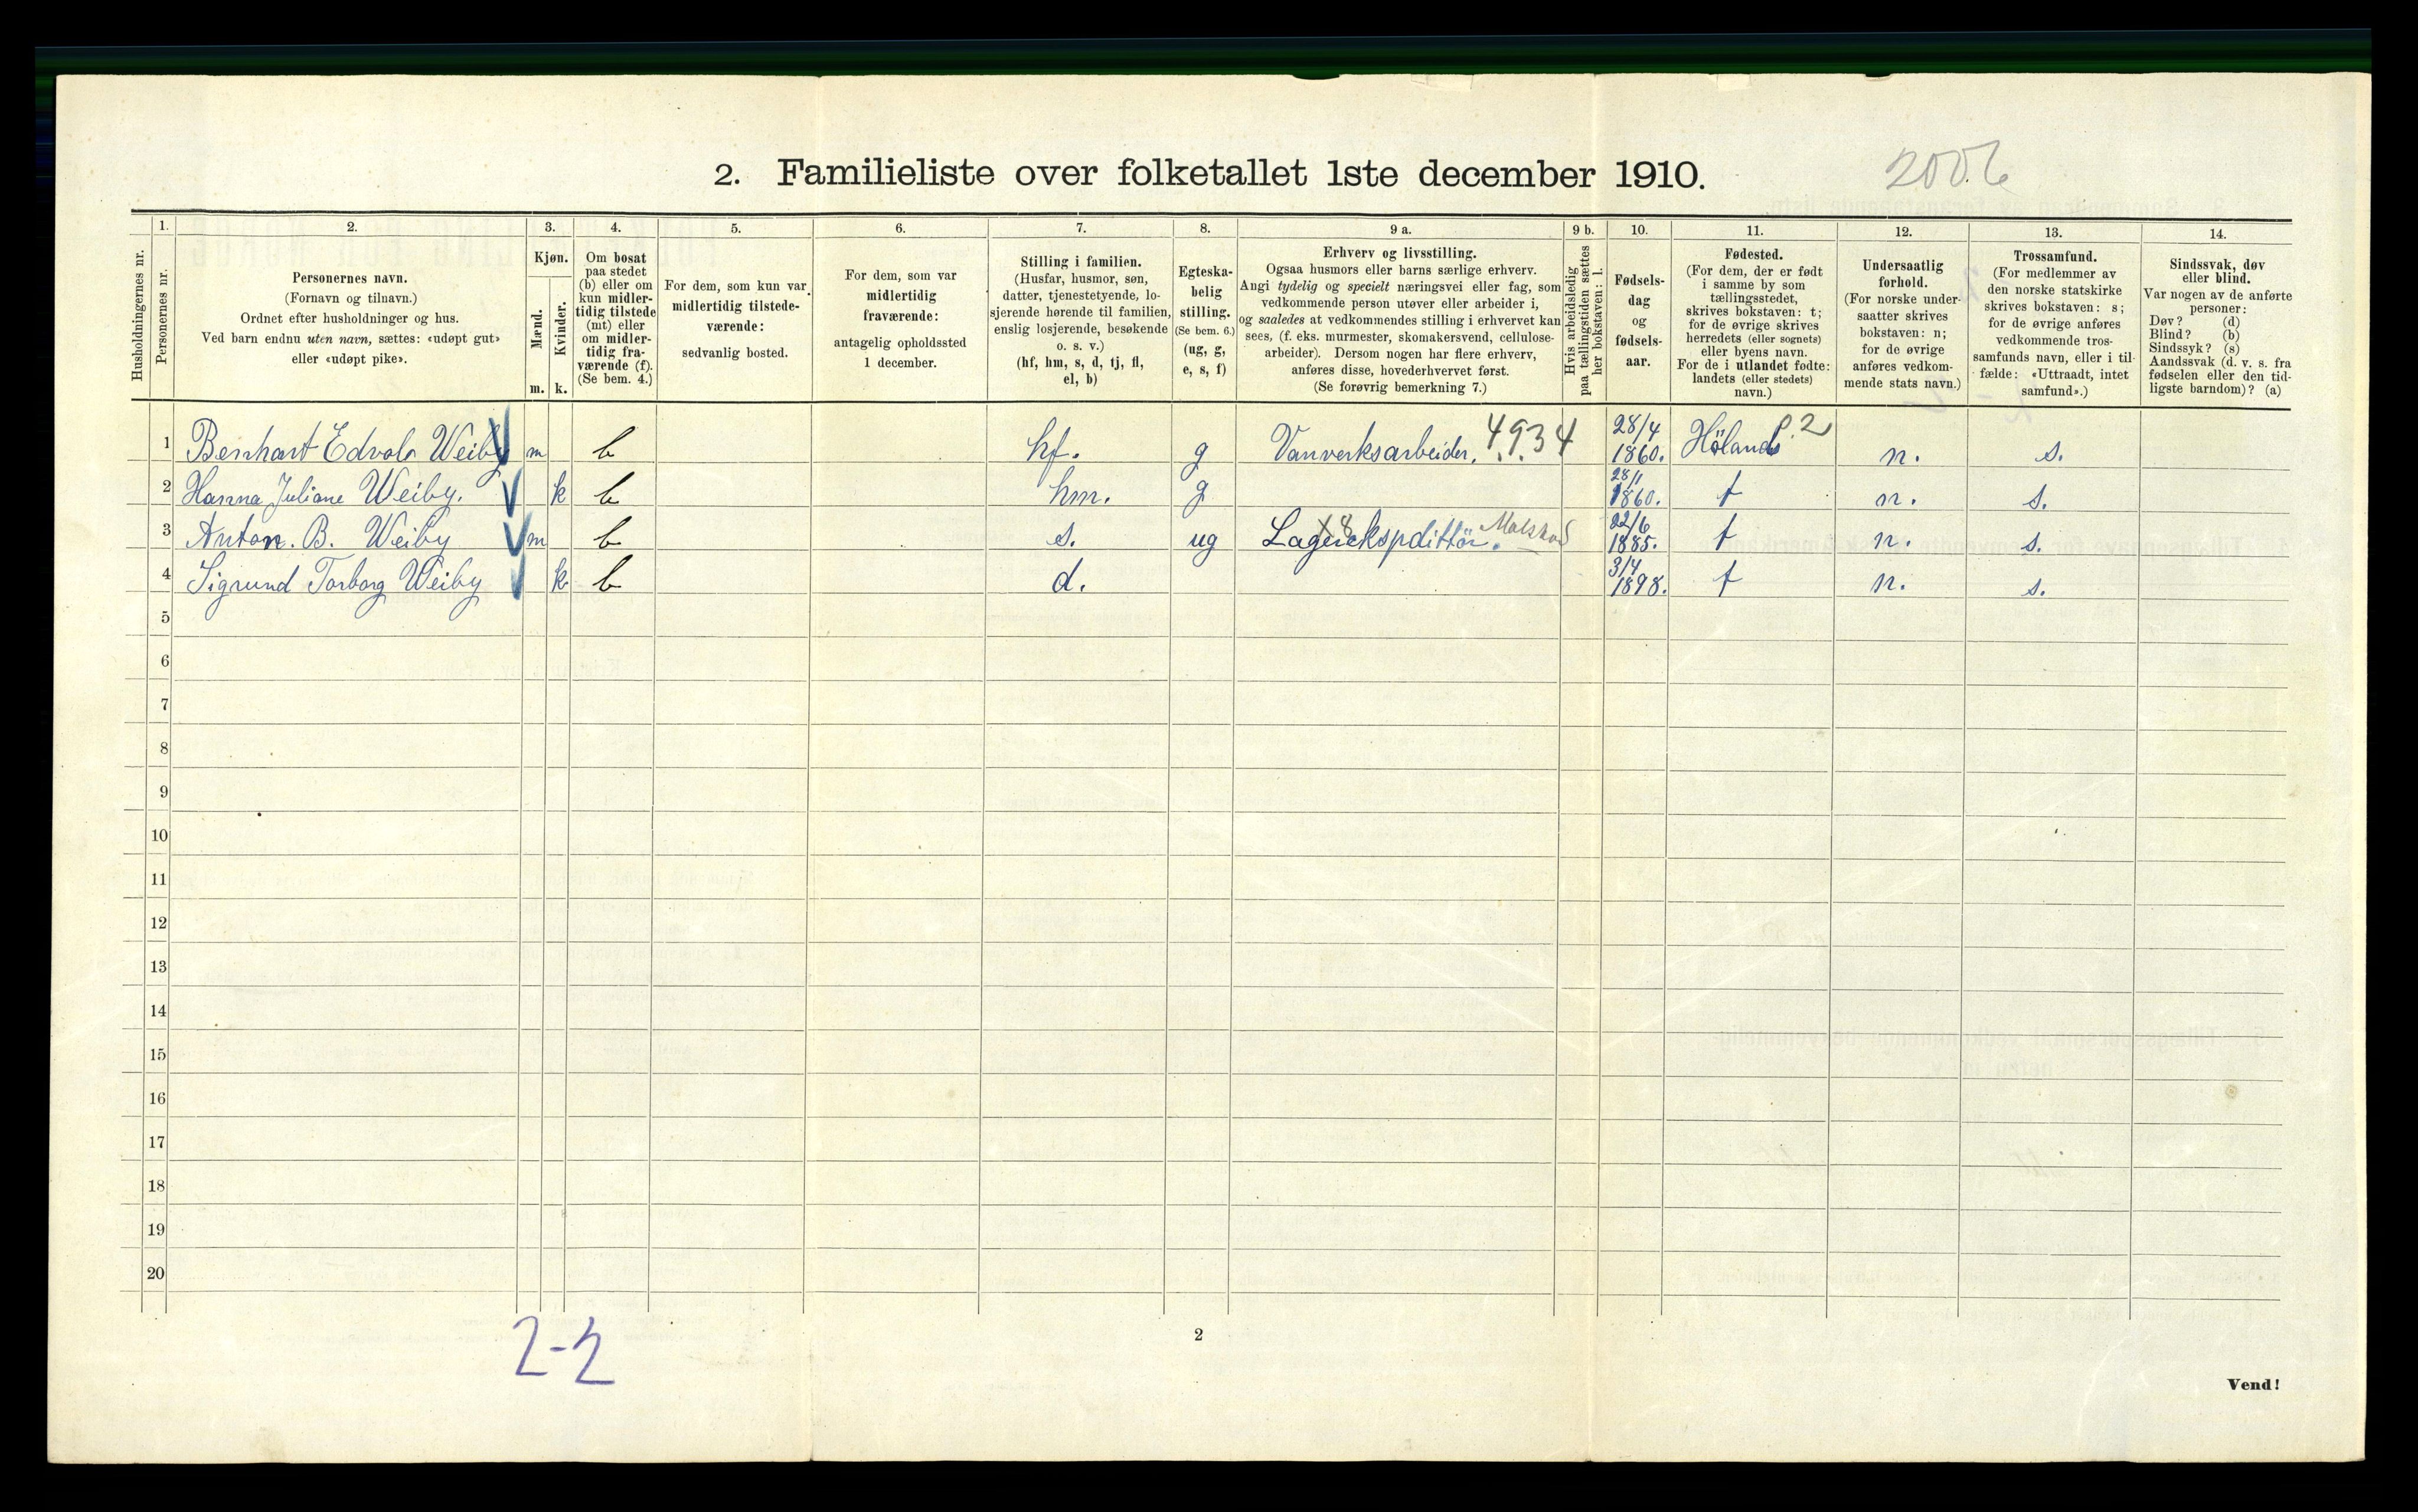 2. Familieliste over folketallet 1ste december 1910.
2006
Husholdningernes nr.
1.
Personernes nr.
2.
Personernes navn.
(Fornavn og tilnavn.)
Ordnet efter husholdninger og hus.
Ved barn endnu uten navn, sættes: «udøpt gut»
eller «udøpt pike».
3.
Kjøn.
Mænd.
m.
Kvinder.
k.
4.
Om bosat
paa stedet
(b) eller om
kun midler-
tidig tilstede
(mt) eller
om midler-
tidig fra-
værende (f).
(Se bem. 4.)
5.
For dem, som kun var
midlertidig tilstede-
værende:
sedvanlig bosted.
6.
For dem, som var
midlertidig
fraværende:
antagelig opholdssted
1 december.
7.
Stilling i familien.
(Husfar, husmor, søn,
datter, tjenestetyende, lo-
sjerende hørende til familien,
enslig losjerende, besøkende
o. s. v.)
(hf, hm, s, d, tj, fl,
el, b)
8.
Egteska-
belig
stilling.
(Se bem. 6.)
(ug, g,
e, s, f)
9 a.
Erhverv og livsstilling.
Ogsaa husmors eller barns særlige erhverv.
Angi tydelig og specielt næringsvei eller fag, som
vedkommende person utøver eller arbeider i,
og saaledes at vedkommendes stilling i erhvervet kan
sees, (f. eks. murmester, skomakersvend, cellulose-
arbeider). Dersom nogen har flere erhverv,
anføres disse, hovederhvervet først.
(Se forøvrig bemerkning 7.)
9 b.
Hvis arbeidsledig
paa tællingstiden sættes
her bokstaven: l.
10.
Fødsels-
dag
og
fødsels-
aar.
11.
Fødested.
(For dem, der er født
i samme by som
tællingsstedet,
skrives bokstaven: t;
for de øvrige skrives
herredets (eller sognets)
eller byens navn.
For de i utlandet fødte:
landets (eller stedets)
navn.)
12.
Undersaatlig
forhold.
(For norske under-
saatter skrives
bokstaven: n;
for de øvrige
anføres vedkom-
mende stats navn.)
13.
Trossamfund.
(For medlemmer av
den norske statskirke
skrives bokstaven: s;
for de øvrige anføres
vedkommende tros-
samfunds navn, eller i til-
fælde: «Uttraadt, intet
samfund».)
14.
Sindssvak, døv
eller blind.
Var nogen av de anførte
personer:
Døv? (d)
Blind? (b)
Sindssyk? (s)
Aandssvak (d. v. s. fra
fødselen eller den tid-
ligste barndom)? (a)
1 Bernhart Edvals Weiby m b hf. g Vanverksarbeider. 4934 28/4 1860. Hölands 2 n. s.
2 Hanna Juliane Weiby. k b hm. g 28/1 1860. t n. s.
3 Anton. B. Weiby m b s. ug Lagerekspdittör. 22/6 1885. t n. s.
4 Sigrund Torborg Weiby k b d. 3/4 1898. t n. s.
5
6
7
8
9
10
11
12
13
14
15
16
17
18
19
20
2-2
2
Vend!